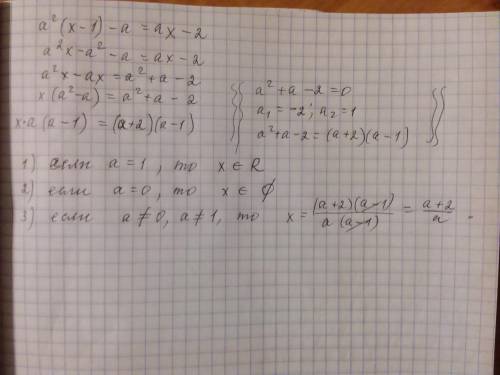 a²(x-1)-a = ax-2
a²x-a²-a = ax-2
a²x-ax = a²+a-2
x(a²-a) = a²+a-2
x·a(a-1) = (a+2)(a-1)
a²+a-2=0
a₁=-2; a₂=1
a²+a-2=(a+2)(a-1)
1) если a=1, то x ∈ R
2) если a=0, то x ∈ ∅
3) если a≠0, a≠1, то x = (a+2)(a-1)/a(a-1) = a+2/a.